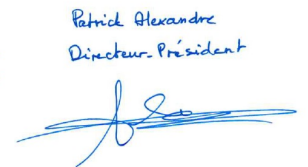 Patrick Alexandre
Directeur-Président